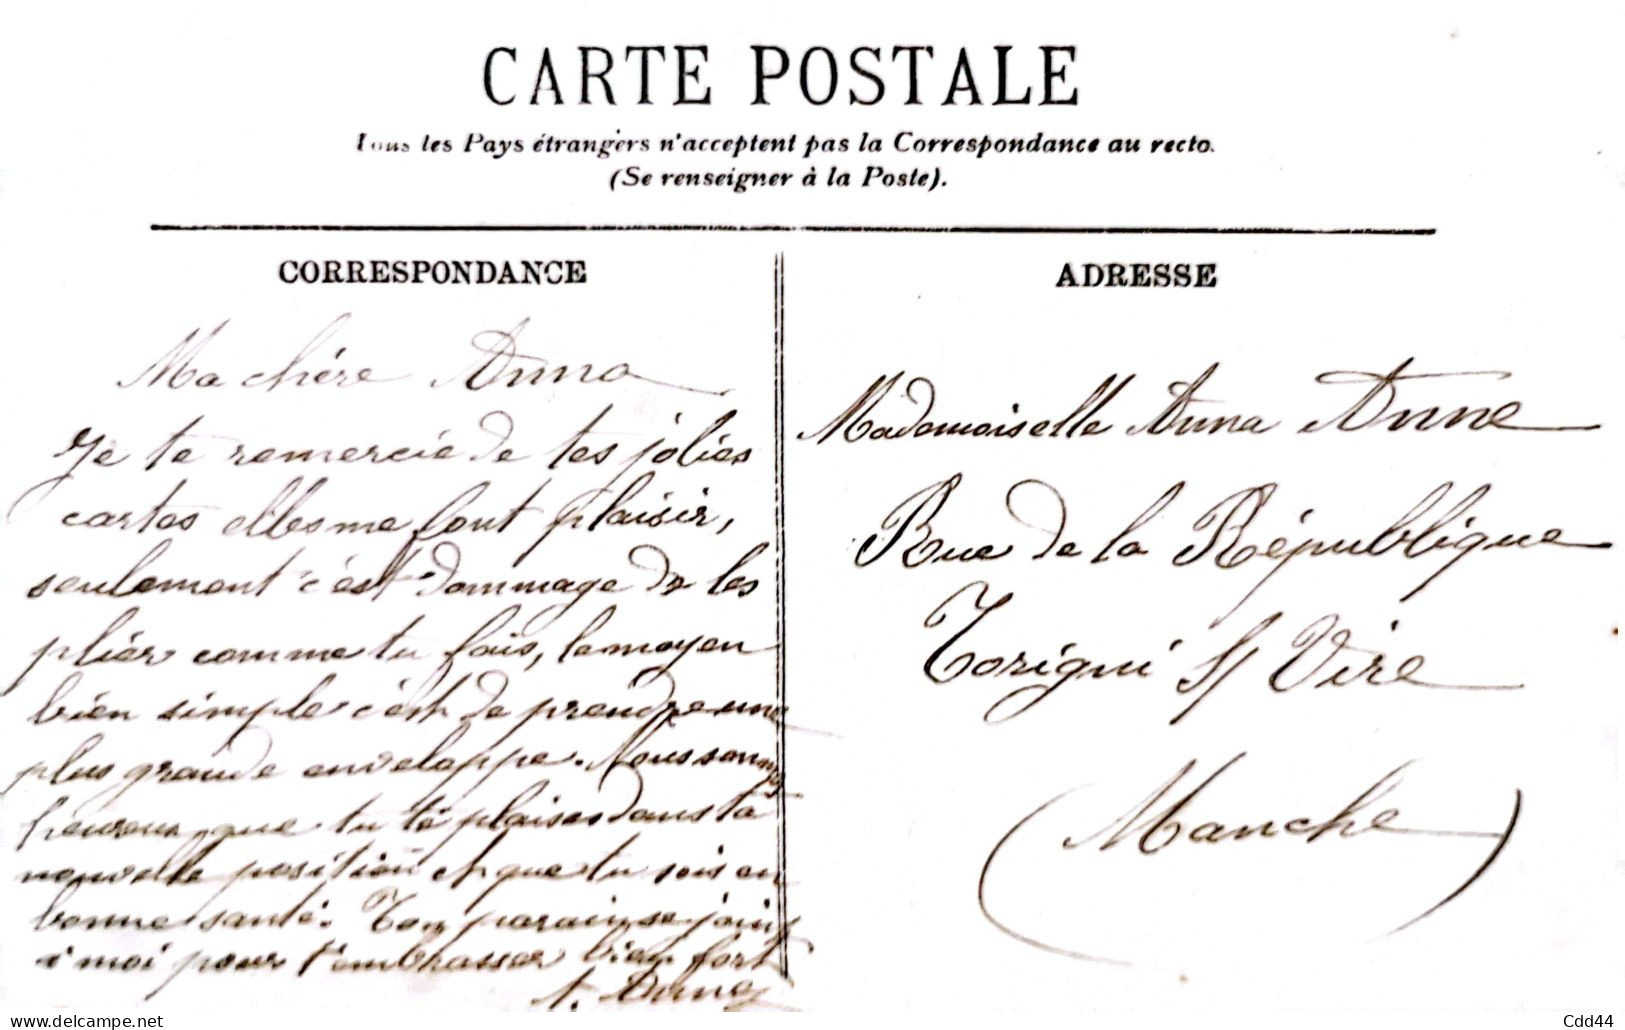 CARTE POSTALE
Tous les Pays étrangers n'acceptent pas la Correspondance au recto.
(Se renseigner à la Poste).
CORRESPONDANCE
Ma chère Anna
Je te remercie de tes jolies
cartes elles me font plaisir,
seulement c'est dommage de les
plier comme tu fais, le moyen
bien simple c'est de prendre une
plus grande enveloppe. Nous sommes
heureux que tu te plaises dans ta
nouvelle position et que tu sois en
bonne santé. Ton parain se joint
à moi pour t'embrasser bien fort
A. Anne
ADRESSE
Mademoiselle Anna Anne
Rue de la République
Torigni s/ Vire
(Manche)
Cdd44